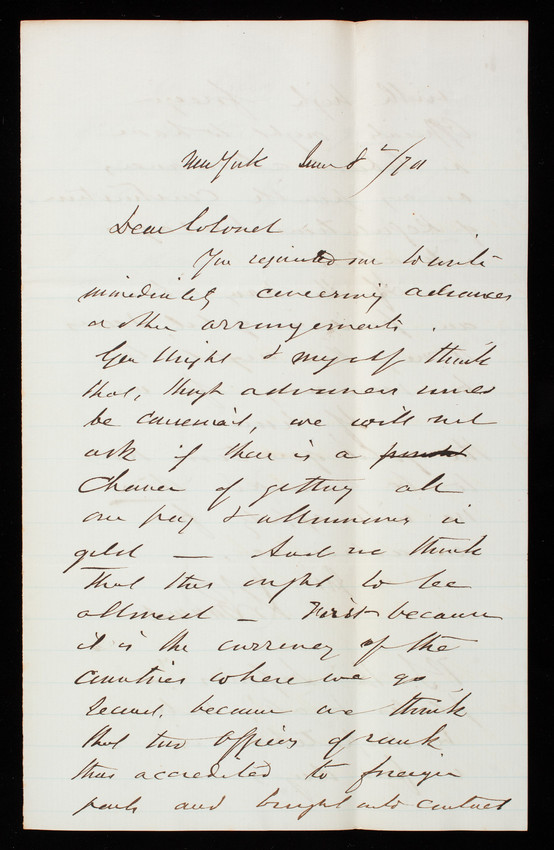 New York June 8th/70
Dear Colonel
You requested me to write
immediately concerning advances
or other arrangements.
Gen Wright & myself think
that, though advances would
be convenient, we will not
ask if there is a
chance of getting all
our pay & allowances in
gold — And we think
that this ought to be
allowed — First because
it is the currency of the
countries where we go
second, because we think
that two officers of rank
thus accredited to foreign
parts and brought into contact